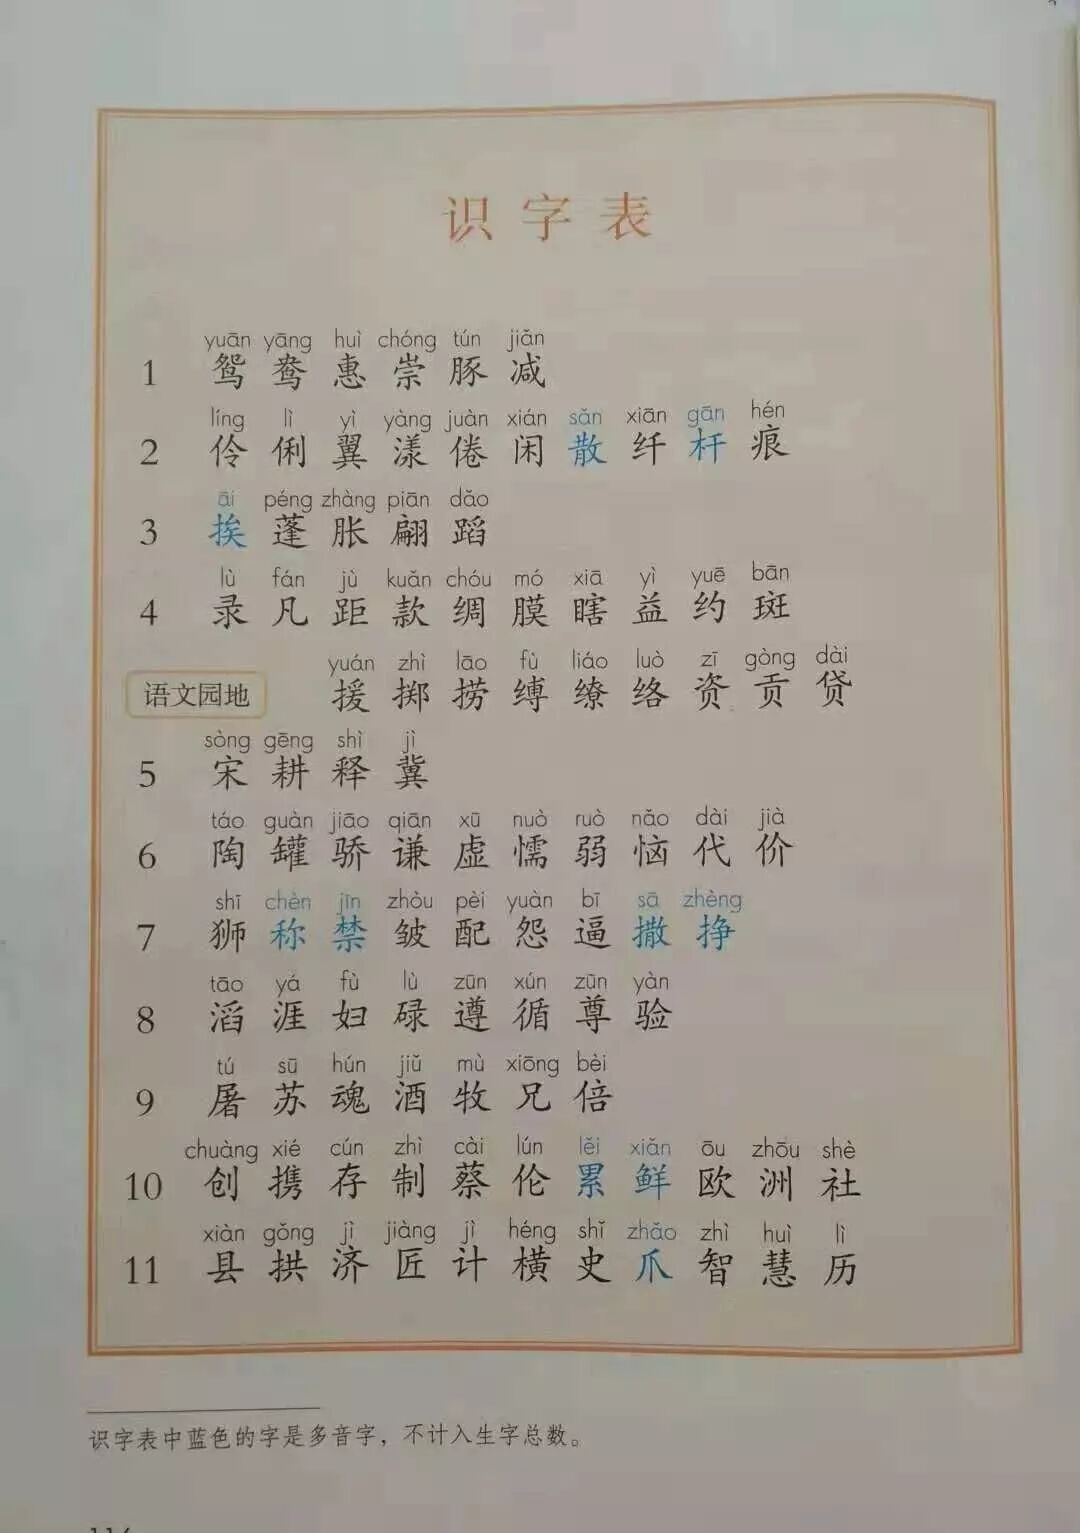 识字表
yuān yāng huì chóng tún jiǎn
1 鸳 鸯 惠 崇 豚 减
líng lì yì yàng juàn xián sǎn xiān gān hén
2 伶 俐 翼 漾 倦 闲 散 纤 杆 痕
āi péng zhàng piān dǎo
3 挨 蓬 胀 翩 蹈
lù fán jù kuǎn chóu mó xiā yì yuē bān
4 录 凡 距 款 绸 膜 瞎 益 约 斑
yuán zhì lāo fù liáo luò zī gòng dài
语文园地 援 掷 捞 缚 缭 络 资 贡 贷
sòng gēng shì jì
5 宋 耕 释 冀
táo guàn jiāo qiān xū nuò ruò nǎo dài jià
6 陶 罐 骄 谦 虚 懦 弱 恼 代 价
shī chèn jīn zhòu pèi yuàn bī sā zhèng
7 狮 称 禁 皱 配 怨 逼 撒 挣
tāo yá fù lù zūn xún zūn yàn
8 滔 涯 妇 碌 遵 循 尊 验
tú sū hún jiǔ mù xiōng bèi
9 屠 苏 魂 酒 牧 兄 倍
chuàng xié cún zhì cài lún lěi xiǎn ōu zhōu shè
10 创 携 存 制 蔡 伦 累 鲜 欧 洲 社
xiàn gǒng jì jiàng jì héng shǐ zhǎo zhì huì lì
11 县 拱 济 匠 计 横 史 爪 智 慧 历
识字表中蓝色的字是多音字，不计入生字总数。